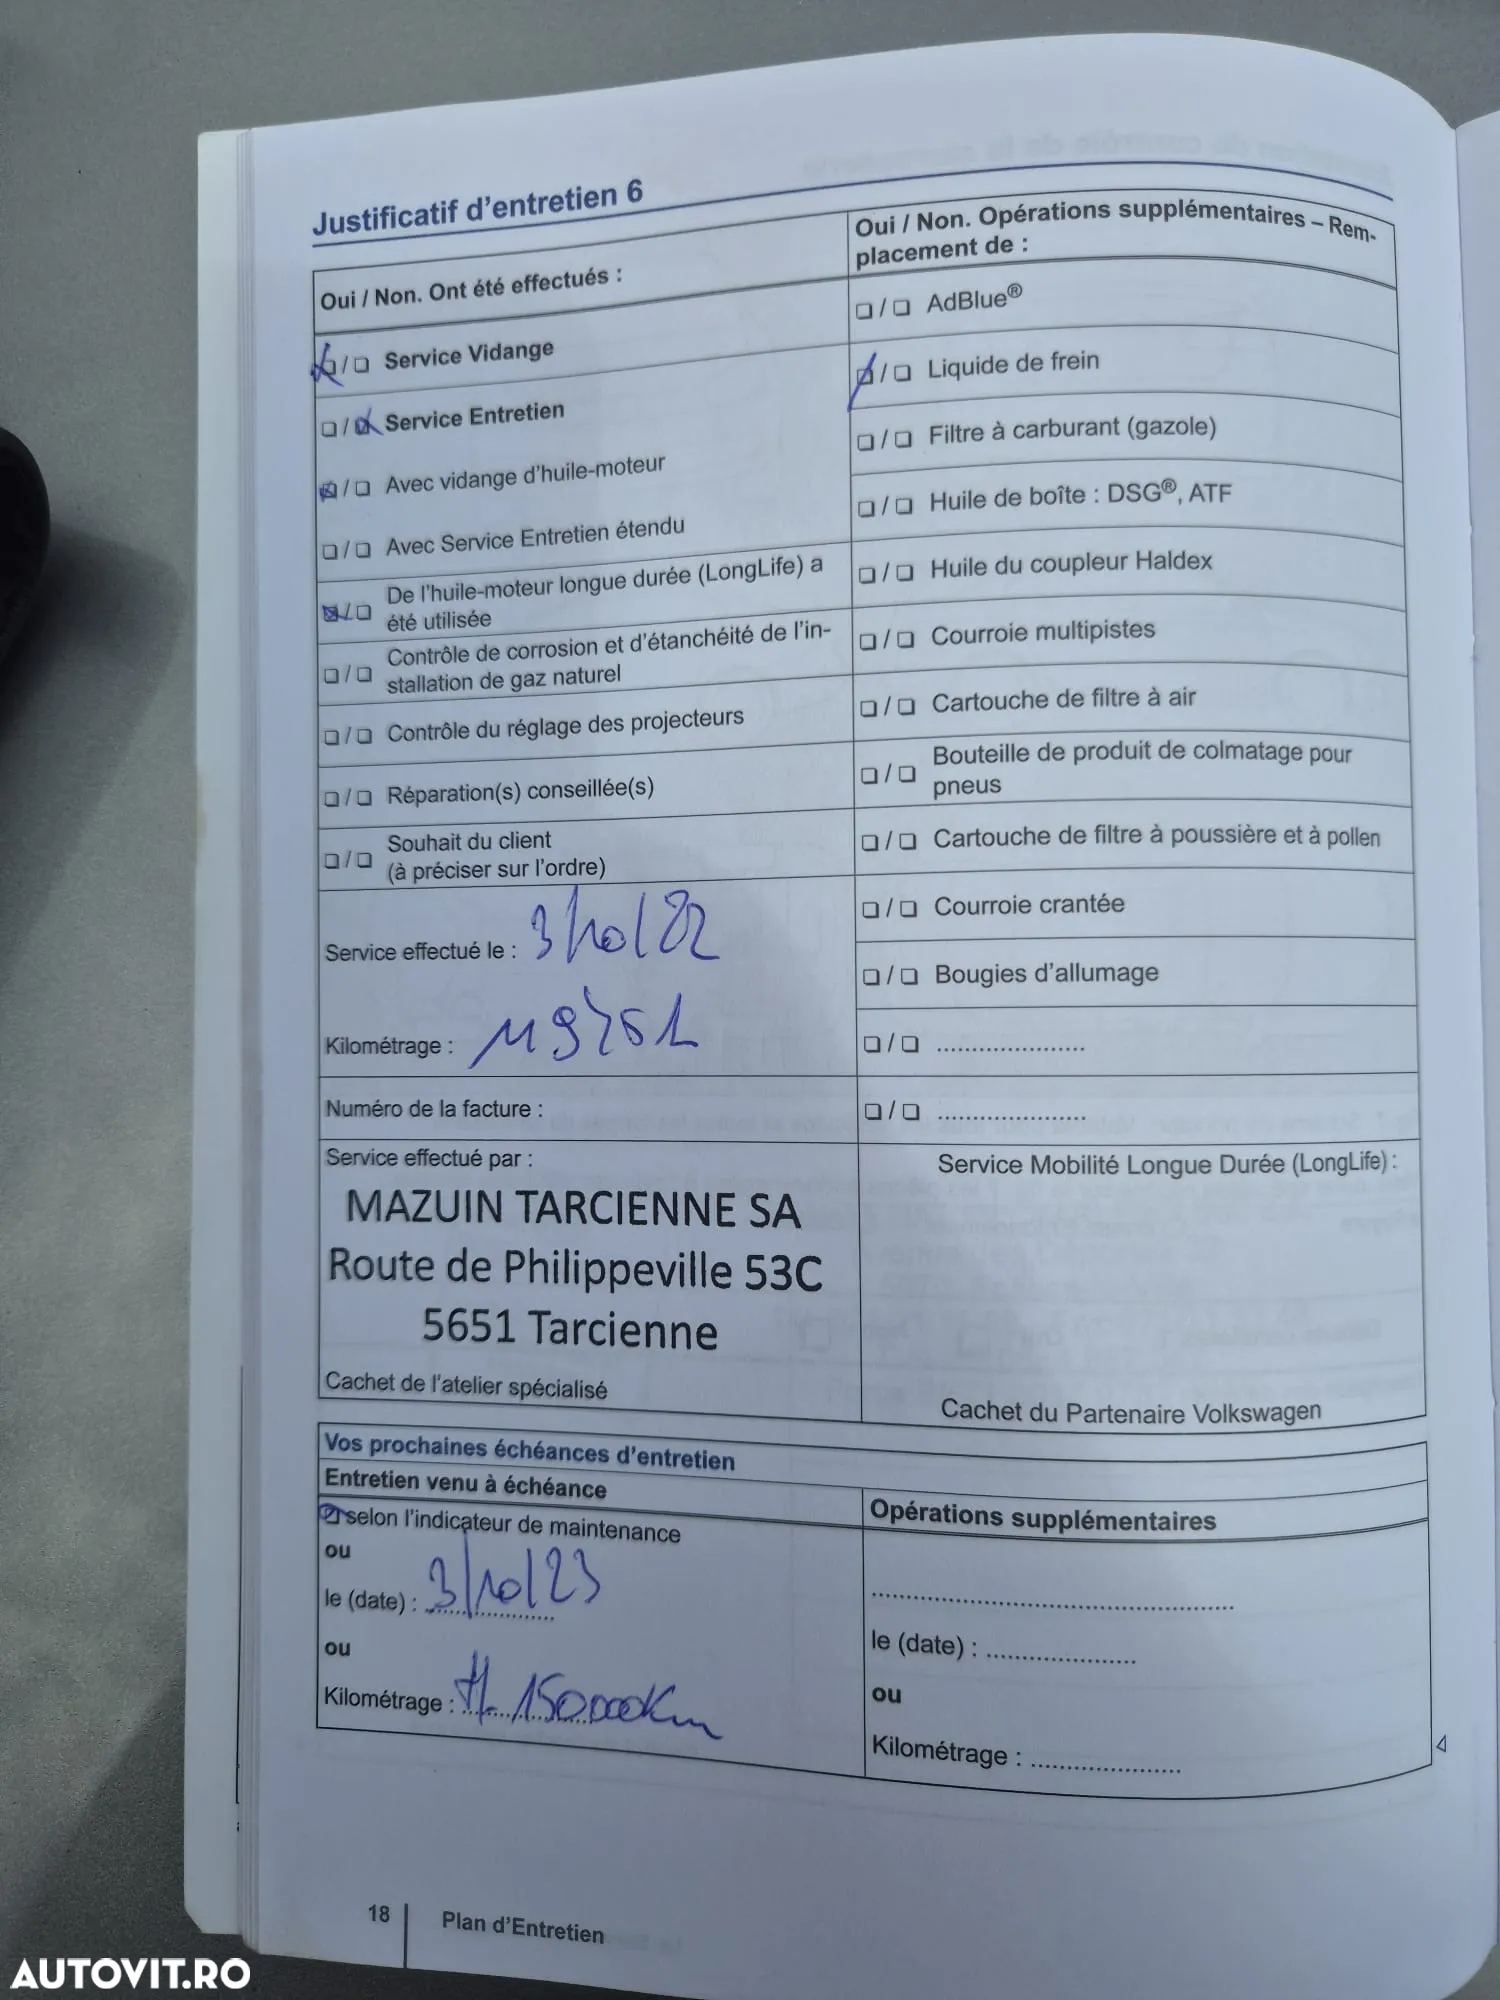 Justificatif d'entretien 6
Oui / Non. Ont été effectués :
☒ / ☐ Service Vidange
☐ / ☒ Service Entretien
☒ / ☐ Avec vidange d'huile-moteur
☐ / ☐ Avec Service Entretien étendu
☒ / ☐ De l'huile-moteur longue durée (LongLife) a
été utilisée
☐ / ☐ Contrôle de corrosion et d'étanchéité de l'in-
stallation de gaz naturel
☐ / ☐ Contrôle du réglage des projecteurs
☐ / ☐ Réparation(s) conseillée(s)
☐ / ☐ Souhait du client
(à préciser sur l'ordre)
Service effectué le : 3/10/22
Kilométrage :
Numéro de la facture :
Service effectué par :
MAZUIN TARCIENNE SA
Route de Philippeville 53C
5651 Tarcienne
Cachet de l'atelier spécialisé
Oui / Non. Opérations supplémentaires – Rem-
placement de :
☐ / ☐ AdBlue®
☒ / ☐ Liquide de frein
☐ / ☐ Filtre à carburant (gazole)
☐ / ☐ Huile de boîte : DSG®, ATF
☐ / ☐ Huile du coupleur Haldex
☐ / ☐ Courroie multipistes
☐ / ☐ Cartouche de filtre à air
☐ / ☐ Bouteille de produit de colmatage pour
pneus
☐ / ☐ Cartouche de filtre à poussière et à pollen
☐ / ☐ Courroie crantée
☐ / ☐ Bougies d'allumage
☐ / ☐ .....................
☐ / ☐ .....................
Service Mobilité Longue Durée (LongLife) :
Cachet du Partenaire Volkswagen
Vos prochaines échéances d'entretien
Entretien venu à échéance
☒ selon l'indicateur de maintenance
ou
le (date) : 3/10/23
ou
Kilométrage : 15000 Km
Opérations supplémentaires
....................................................
le (date) : .....................
ou
Kilométrage : .....................
18 Plan d'Entretien
AUTOVIT.RO